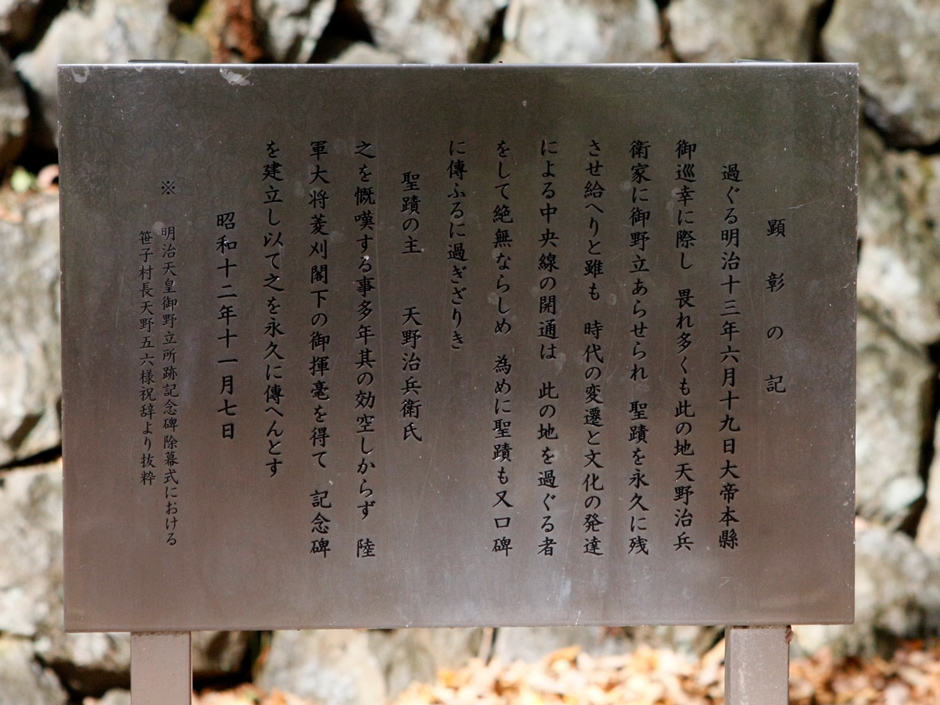 顕彰の記
過ぐる明治十三年六月十九日大帝本縣
御巡幸に際し 畏れ多くも此の地天野治兵
衛家に御野立あらせられ 聖蹟を永久に残
させ給へりと雖も 時代の変遷と文化の発達
による中央線の開通は 此の地を過ぐる者
をして絶無ならしめ 為めに聖蹟も又口碑
に傳ふるに過ぎざりき
聖蹟の主 天野治兵衛氏
之を慨嘆する事多年其の効空しからず 陸
軍大将菱刈閣下の御揮毫を得て 記念碑
を建立し以て之を永久に傳へんとす
昭和十二年十一月七日
※ 明治天皇御野立所跡記念碑除幕式における
笹子村長天野五六様祝辞より抜粋